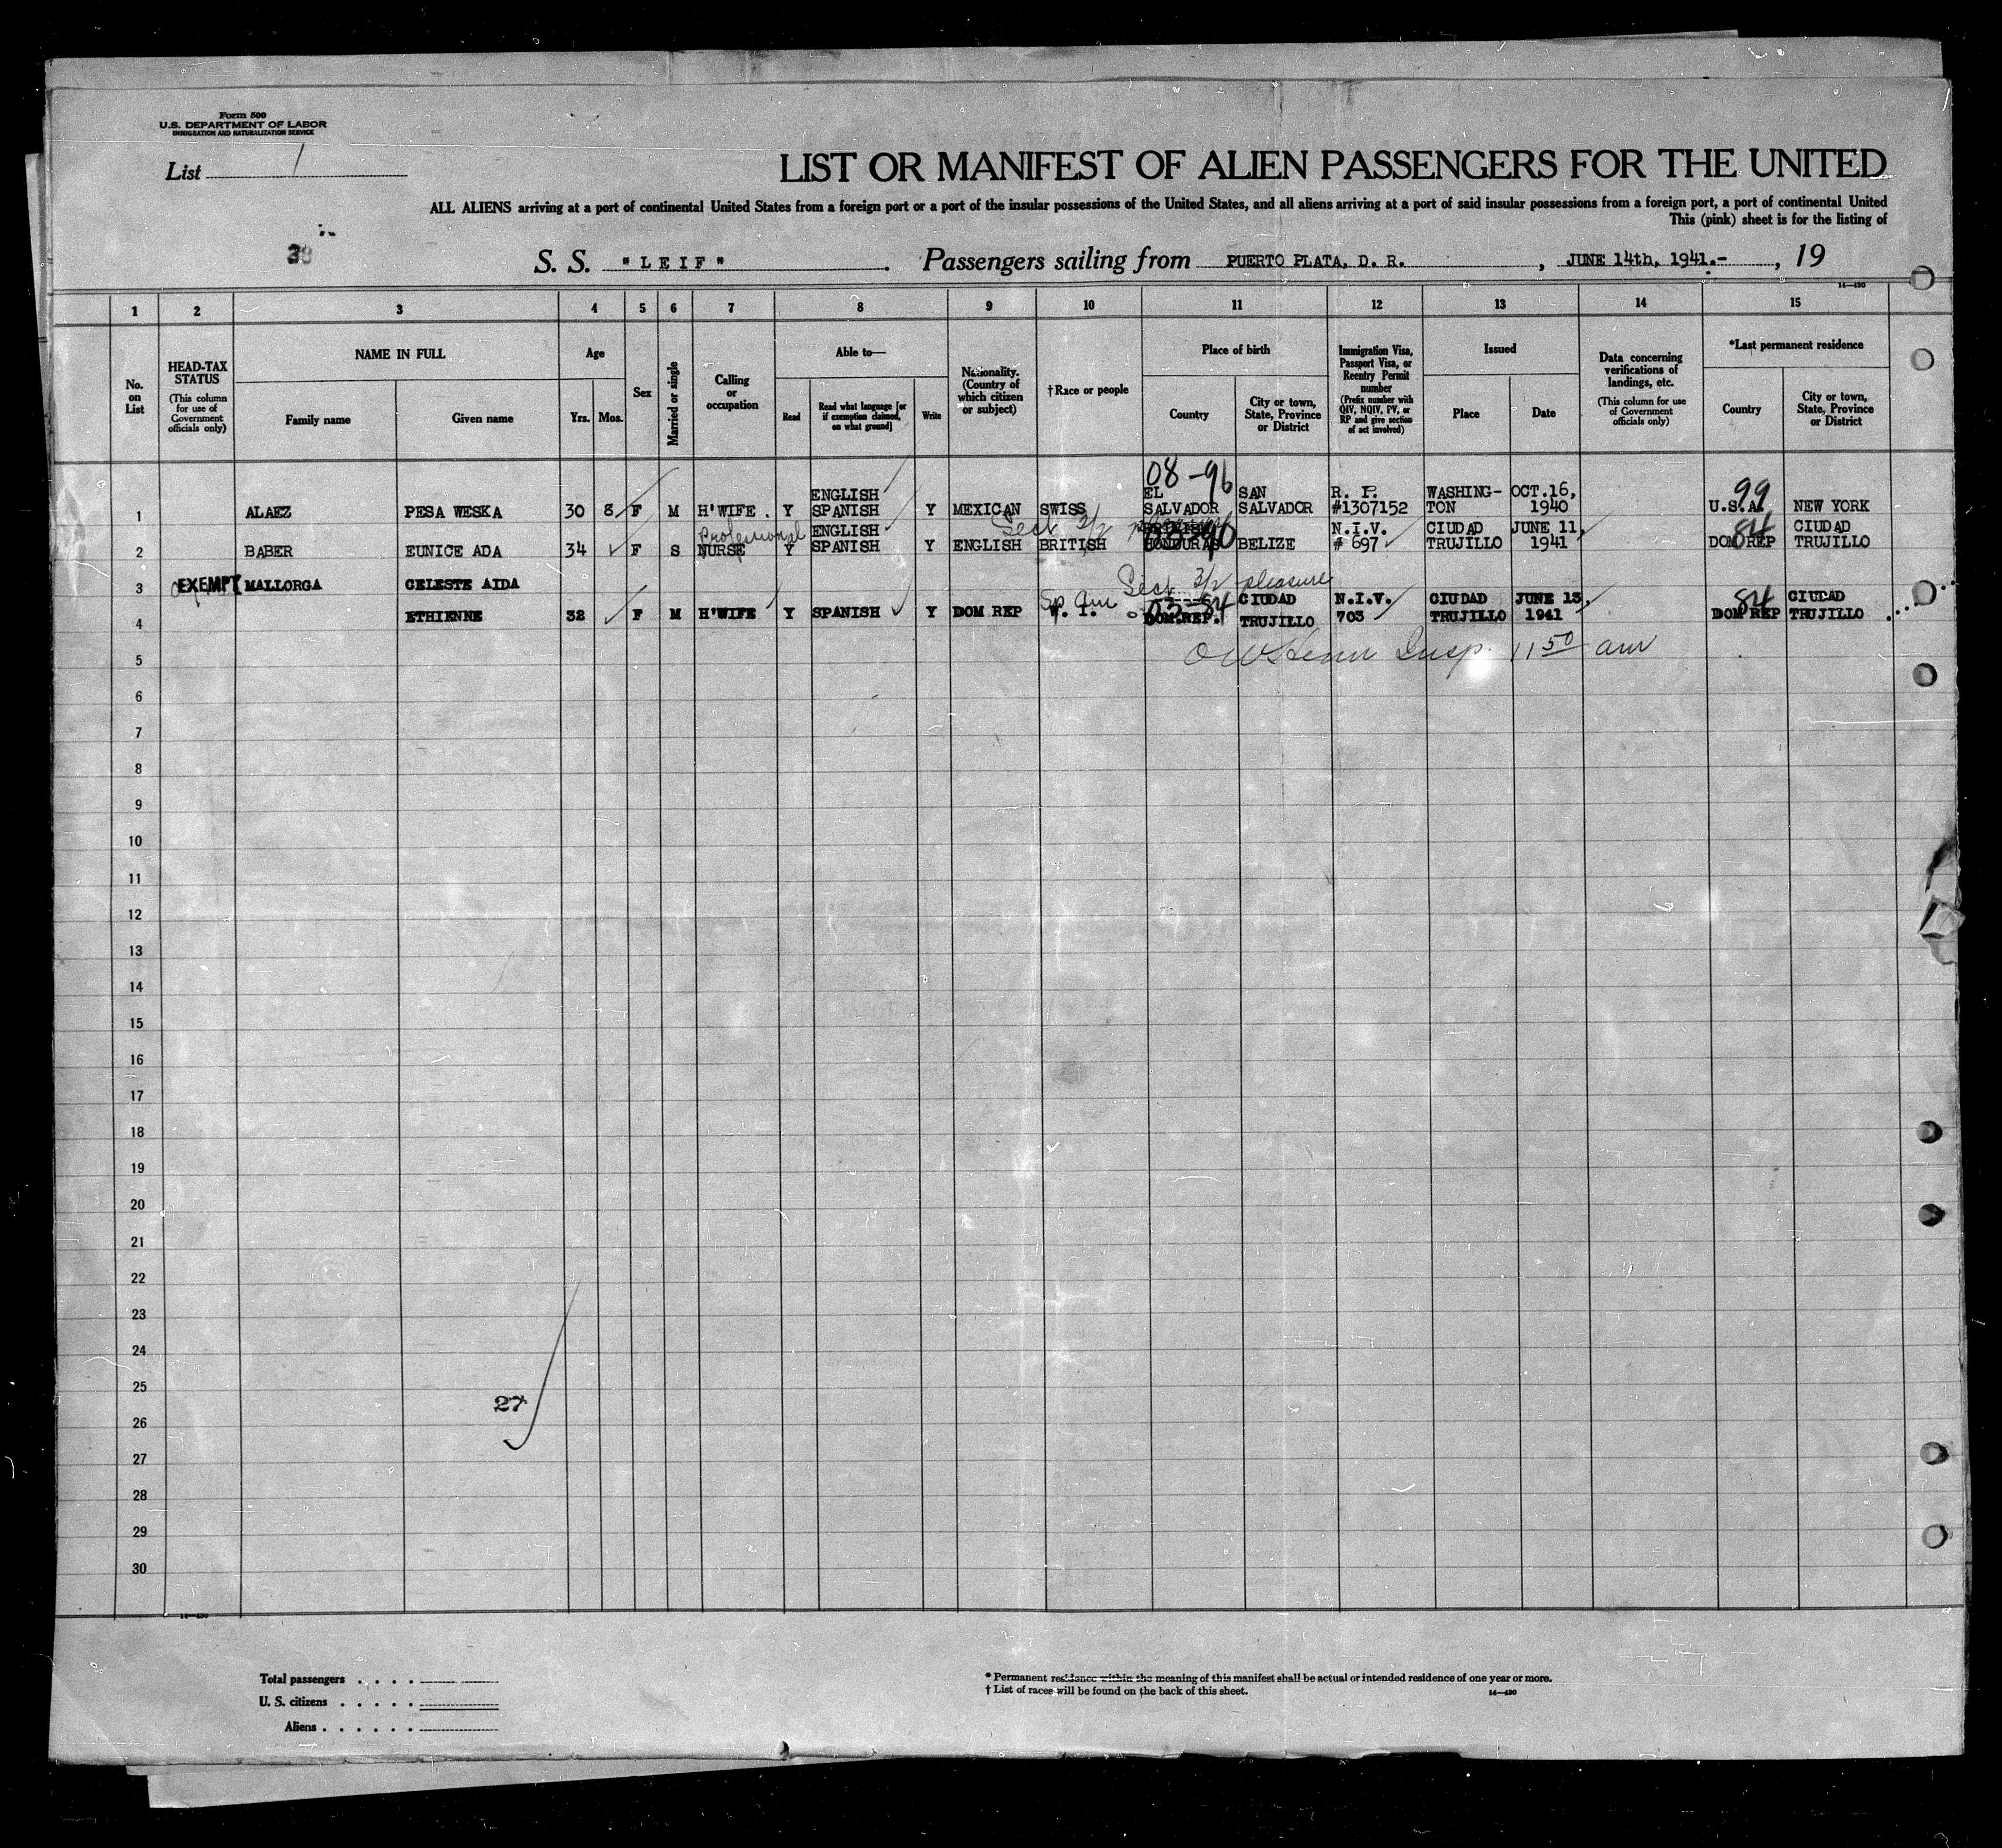 Form 500
U.S. DEPARTMENT OF LABOR
IMMIGRATION AND NATURALIZATION SERVICE
List 1
LIST OR MANIFEST OF ALIEN PASSENGERS FOR THE UNITED
ALL ALIENS arriving at a port of continental United States from a foreign port or a port of the insular possessions of the United States, and all aliens arriving at a port of said insular possessions from a foreign port, a port of continental United
This (pink) sheet is for the listing of
S. S. "LEIF". Passengers sailing from PUERTO PLATA, D. R., JUNE 14th, 1941.-, 19
14—430
1 2 3 4 5 6 7 8 9 10 11 12 13 14 15
No. on List
HEAD-TAX STATUS
(This column for use of Government officials only)
NAME IN FULL
Family name
Given name
Age
Yrs. Mos.
Sex
Married or single
Calling or occupation
Able to—
Read
Read what language [or if exemption claimed, on what ground]
Write
Nationality. (Country of which citizen or subject)
†Race or people
Place of birth
Country
City or town, State, Province or District
Immigration Visa, Passport Visa, or Reentry Permit number
(Prefix number with QIV, NQIV, PV, or RP and give section of act involved)
Issued
Place
Date
Data concerning verifications of landings, etc.
(This column for use of Government officials only)
*Last permanent residence
Country
City or town, State, Province or District
08-96 99
ENGLISH EL SAN R. P. WASHING- OCT.16,
1 ALAEZ PESA WESKA 30 8 F M H'WIFE. Y SPANISH Y MEXICAN SWISS SALVADOR SALVADOR #1307152 TON 1940 U.S.A. NEW YORK
Professional ENGLISH Sect 3/2 N.I.V. CIUDAD JUNE 11, 84 CIUDAD
2 BABER EUNICE ADA 34 F S NURSE Y SPANISH Y ENGLISH BRITISH HONDURAS BELIZE # 697 TRUJILLO 1941 DOM REP TRUJILLO
3 EXEMPT MALLORGA CELESTE AIDA Sect 3/2 pleasure
Sp Am 03-84 CIUDAD N.I.V. CIUDAD JUNE 13, 84 CIUDAD
4 ETHIENNE 32 F M H'WIFE Y SPANISH Y DOM REP W. I. DOM.REP. TRUJILLO 703 TRUJILLO 1941 DOM REP TRUJILLO
Insp. 11 50 am
5
6
7
8
9
10
11
12
13
14
15
16
17
18
19
20
21
22
23
24
25
27
26
27
28
29
30
14—430
Total passengers . . . .
U. S. citizens . . . . .
Aliens . . . . . .
* Permanent residence within the meaning of this manifest shall be actual or intended residence of one year or more.
† List of races will be found on the back of this sheet.
14—430